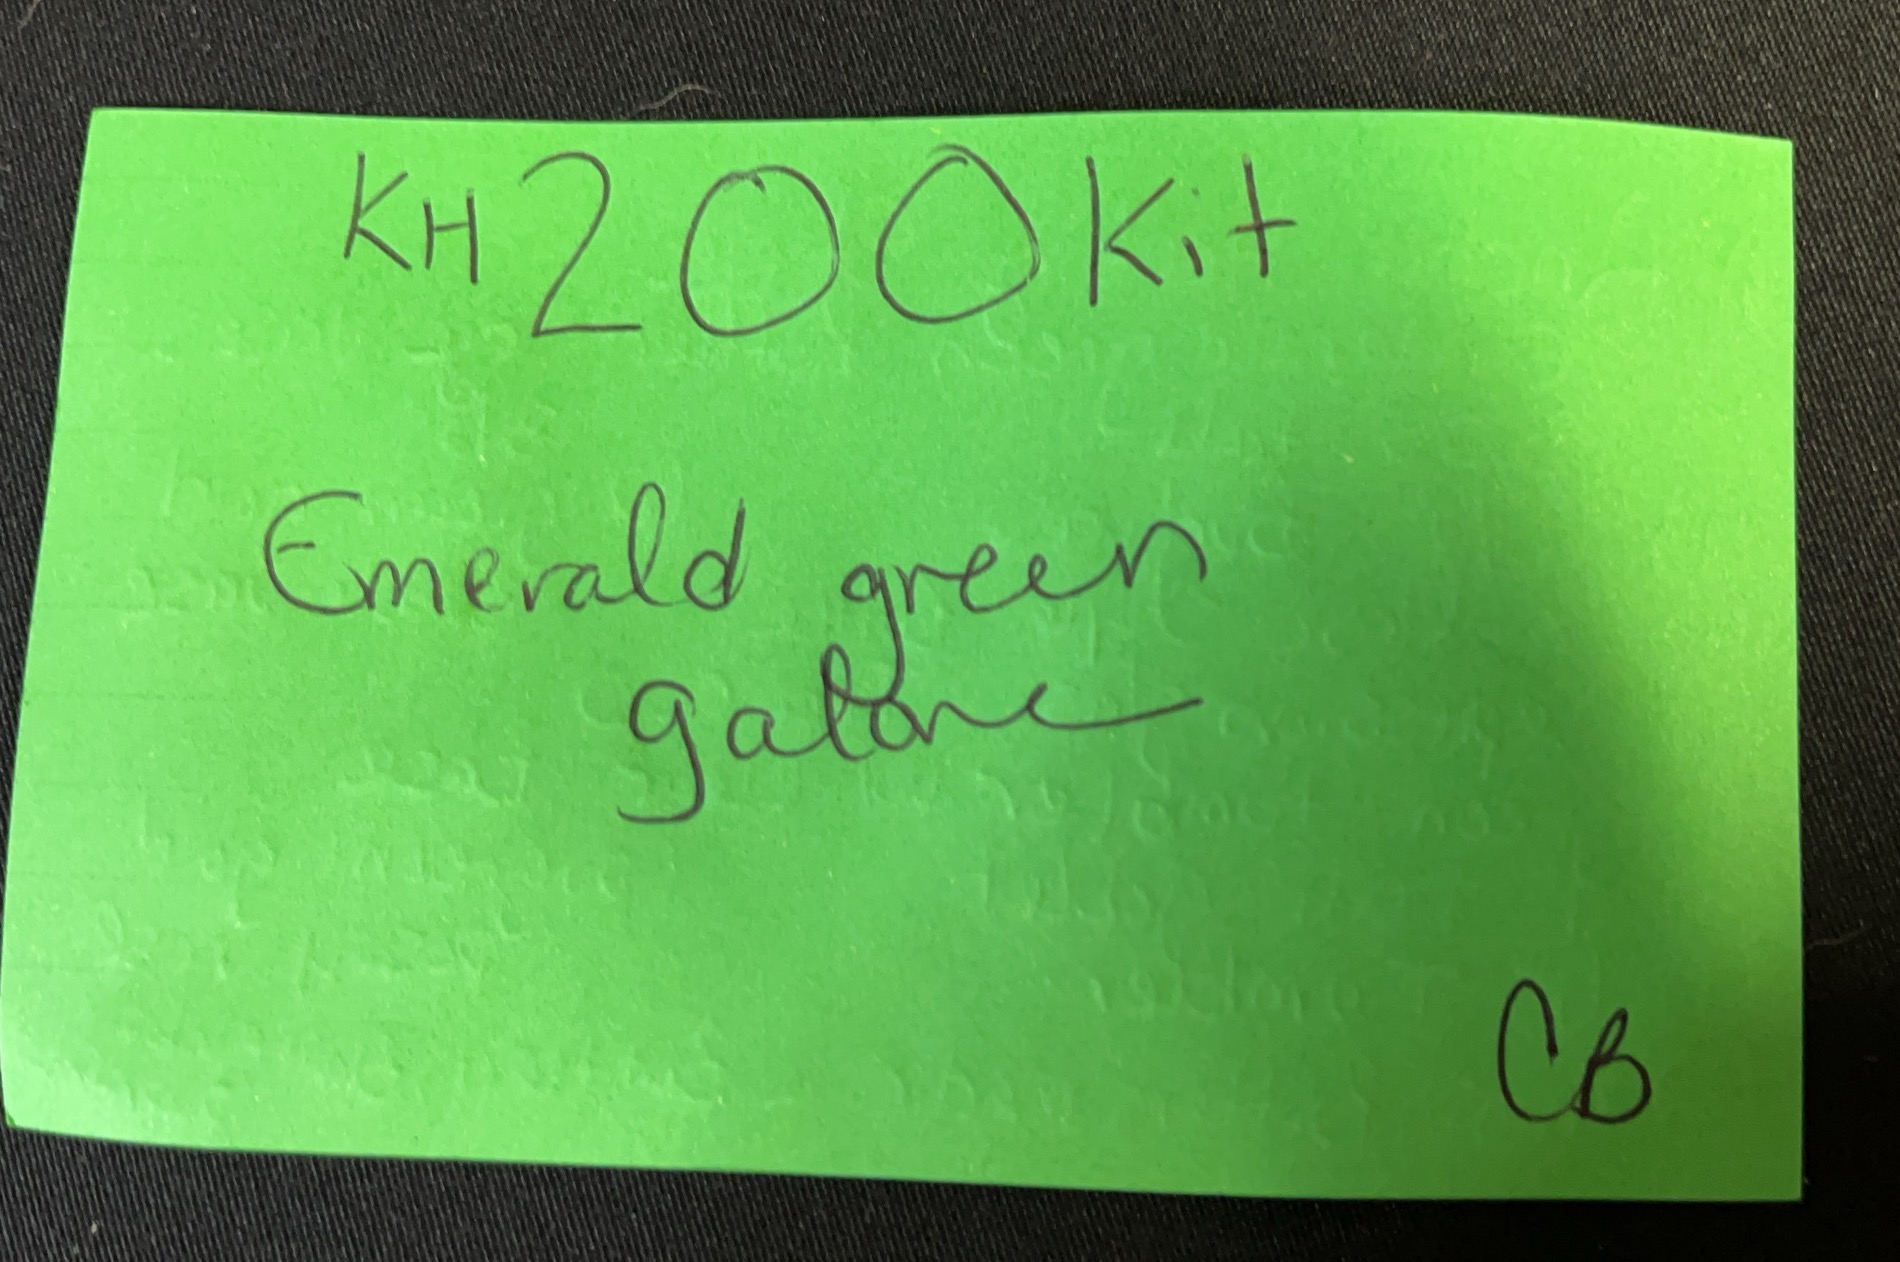 KH200Kit
Emerald green
galore
CB